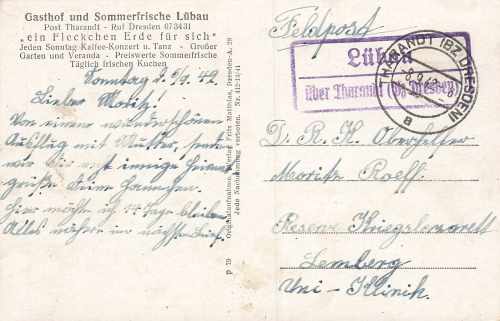 Gasthof und Sommerfrische Lübau
Post Tharandt - Ruf Dresden 673431
„ein Fleckchen Erde für sich"
Jeden Sonntag Kaffee-Konzert u. Tanz - Großer
Garten und Veranda - Preiswerte Sommerfrische
Täglich frischen Kuchen
Sonntag, 5/9. 42
Lieber Moritz!
Von einem wunderschönen
Ausflug mit Mutter, senden
wir die innige Heimat
grüße Deine Hannchen.
Hier möcht ich 14 Tage bleiben
Alles nähere im nächsten Brief.
p 79 Originalaufnahme. Verlag Fritz Matthias, Dresden-A. 28
Jede Nachahmung verboten. Nr. 412/12/41
Feldpost
Lübau
über Tharandt (Bz Dresden)
THARANDT (BZ. DRESDEN)
a
D. R. K. Oberhelfer
Moritz Roeff.
Reserve Kriegslazarett
Lemberg
Uni-Klinik.